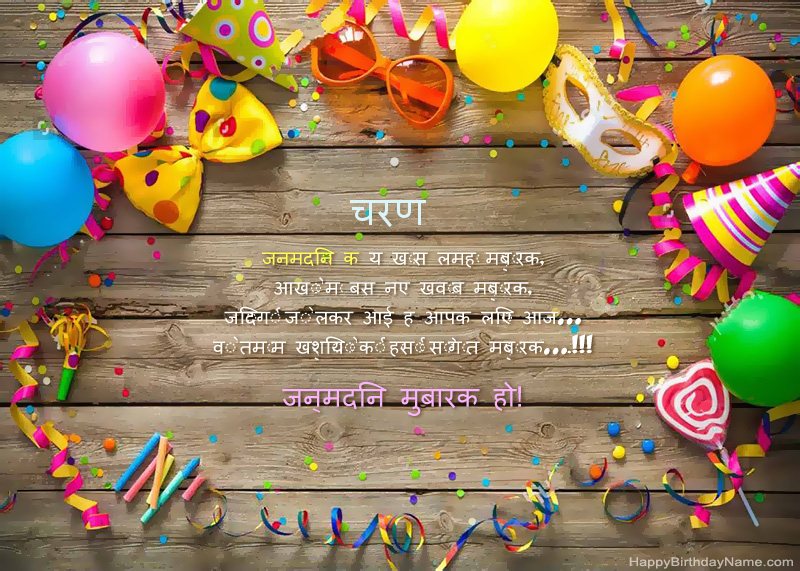 चरण
जनमदनि क य खास लमहा मबारक,
आखों में बस नए खवाब मबारक,
जदिगी जो लेकर आई ह आपक लएि आज...
वो तमाम खशयिों की हसीं सौगात मबारक...!!!
जन्मदनि मुबारक हो!
HappyBirthdayName.com